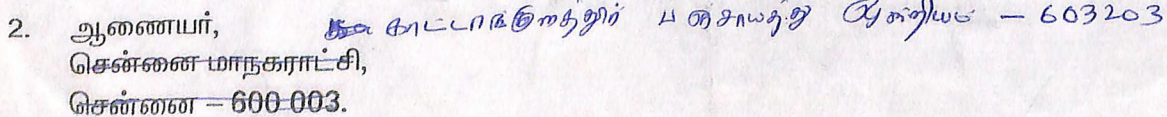 2. ஆணையர், காட்டாங்குளத்தூர் பஞ்சாயத்து ஒன்றியம் – 603203
சென்னை மாநகராட்சி,
சென்னை – 600 003.